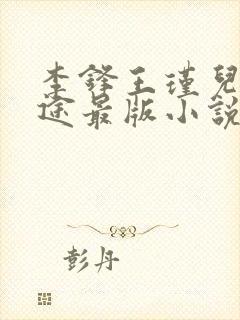 李鋒王瑾兒
途最版小說
彭丹